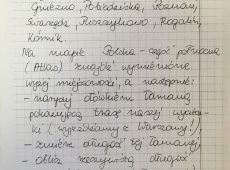 Gniezno, Pobiedziska, Poznań,
Swarzędz, Puszczykowo, Rogalin,
Kórnik.
Na mapie Polska - część północna
(Atlas) znajdź wymienione
wyżej miejscowości, a następnie:
- narysuj ołówkiem łamaną
pokazującą trasę naszej wyciecz-
ki (wyjeżdżamy z Warszawy!),
- zmierz długość tej łamanej,
- oblicz rzeczywistą długość